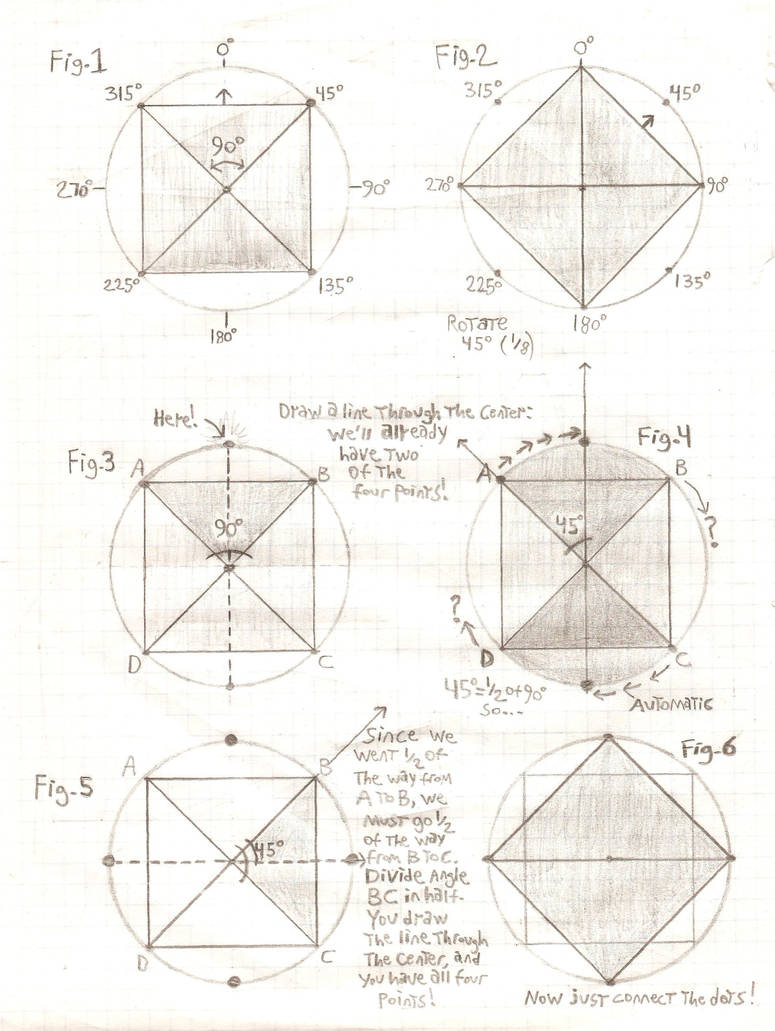 Fig-1
0°
315°
45°
90°
270°
90°
225°
135°
180°
Fig-2
0°
315°
45°
270°
90°
225°
135°
180°
Rotate
45° (1/8)
Fig-3
Here!
A
B
90°
D
C
Draw a line Through The Center:
we'll already
have Two
of The
four points!
Fig-4
A
B
?
45°
?
D
C
45°=1/2 of 90°
so...
Automatic
Fig-5
A
B
45°
D
C
Since we
went 1/2 of
The way from
A To B, we
Must go 1/2
of The way
from B To C.
Divide Angle
BC in half.
You draw
The line Through
The Center, and
you have all four
points!
Fig-6
Now just connect The dots!